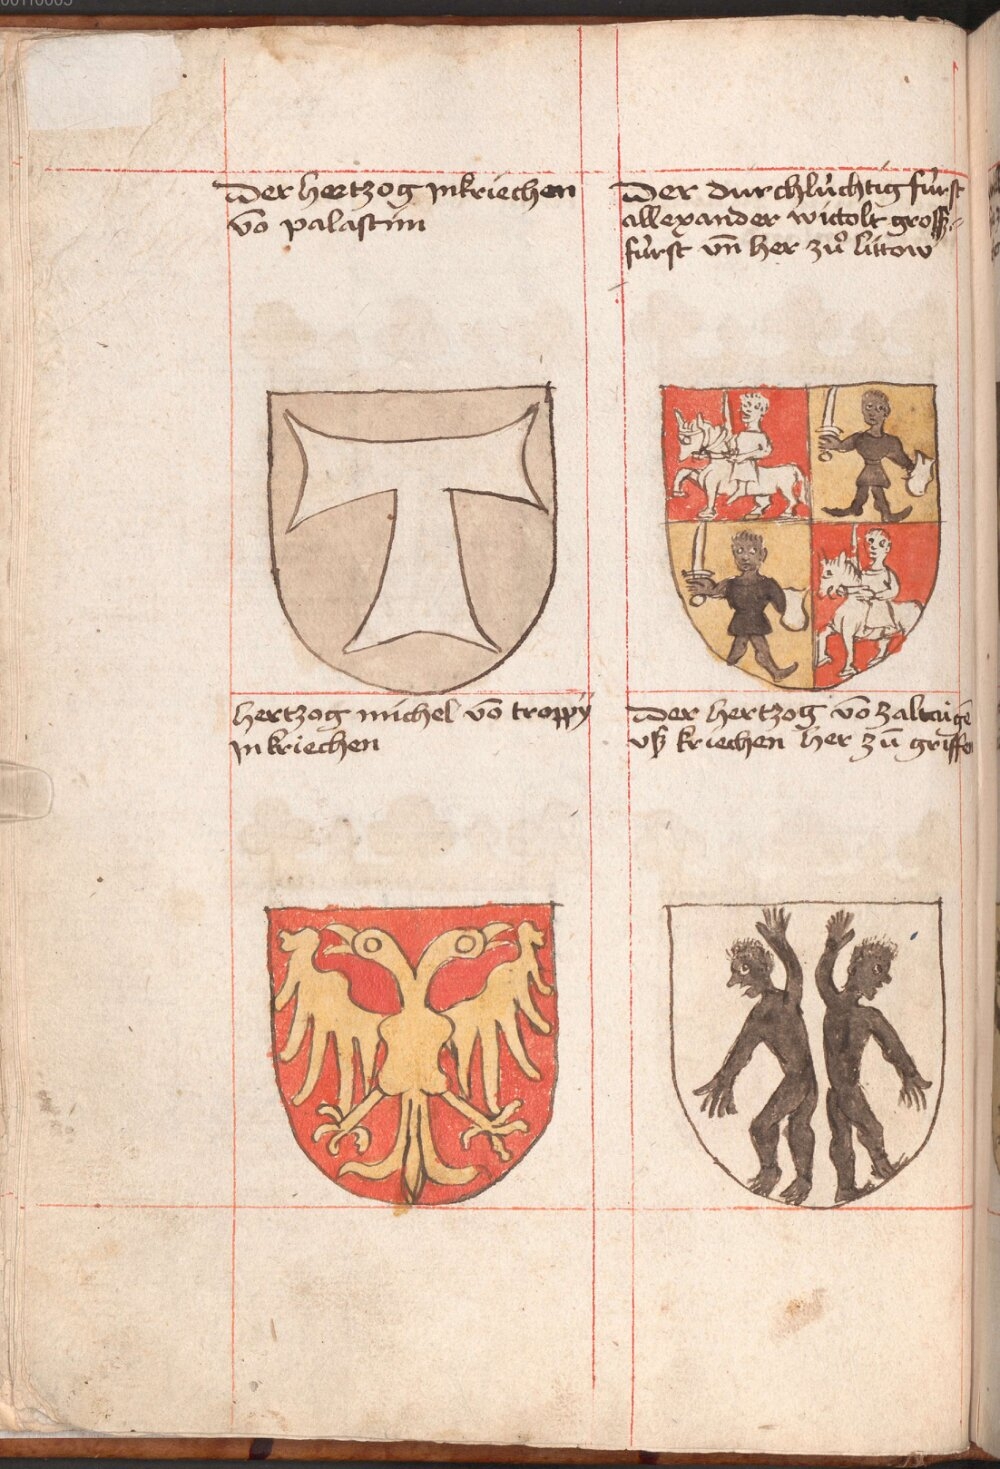 der hertzog jnkriechen
vō palastim
der durchlùchtig fùrst
allexander wittolt gross-
fùrst vn̄ her zuͦ littow
hertzog michel vō troppÿ
jn kriechen
der hertzog vō
vß kriechen her zū griffe